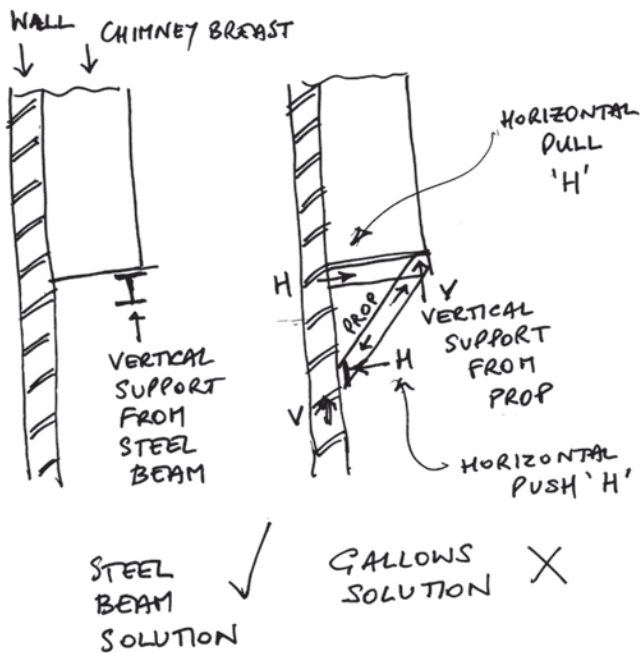 WALL
CHIMNEY BREAST
VERTICAL
SUPPORT
FROM
STEEL
BEAM
HORIZONTAL
PULL
'H'
H
PROP
V
VERTICAL
SUPPORT
FROM
PROP
H
V
HORIZONTAL
PUSH 'H'
STEEL
BEAM
SOLUTION
GALLOWS
SOLUTION